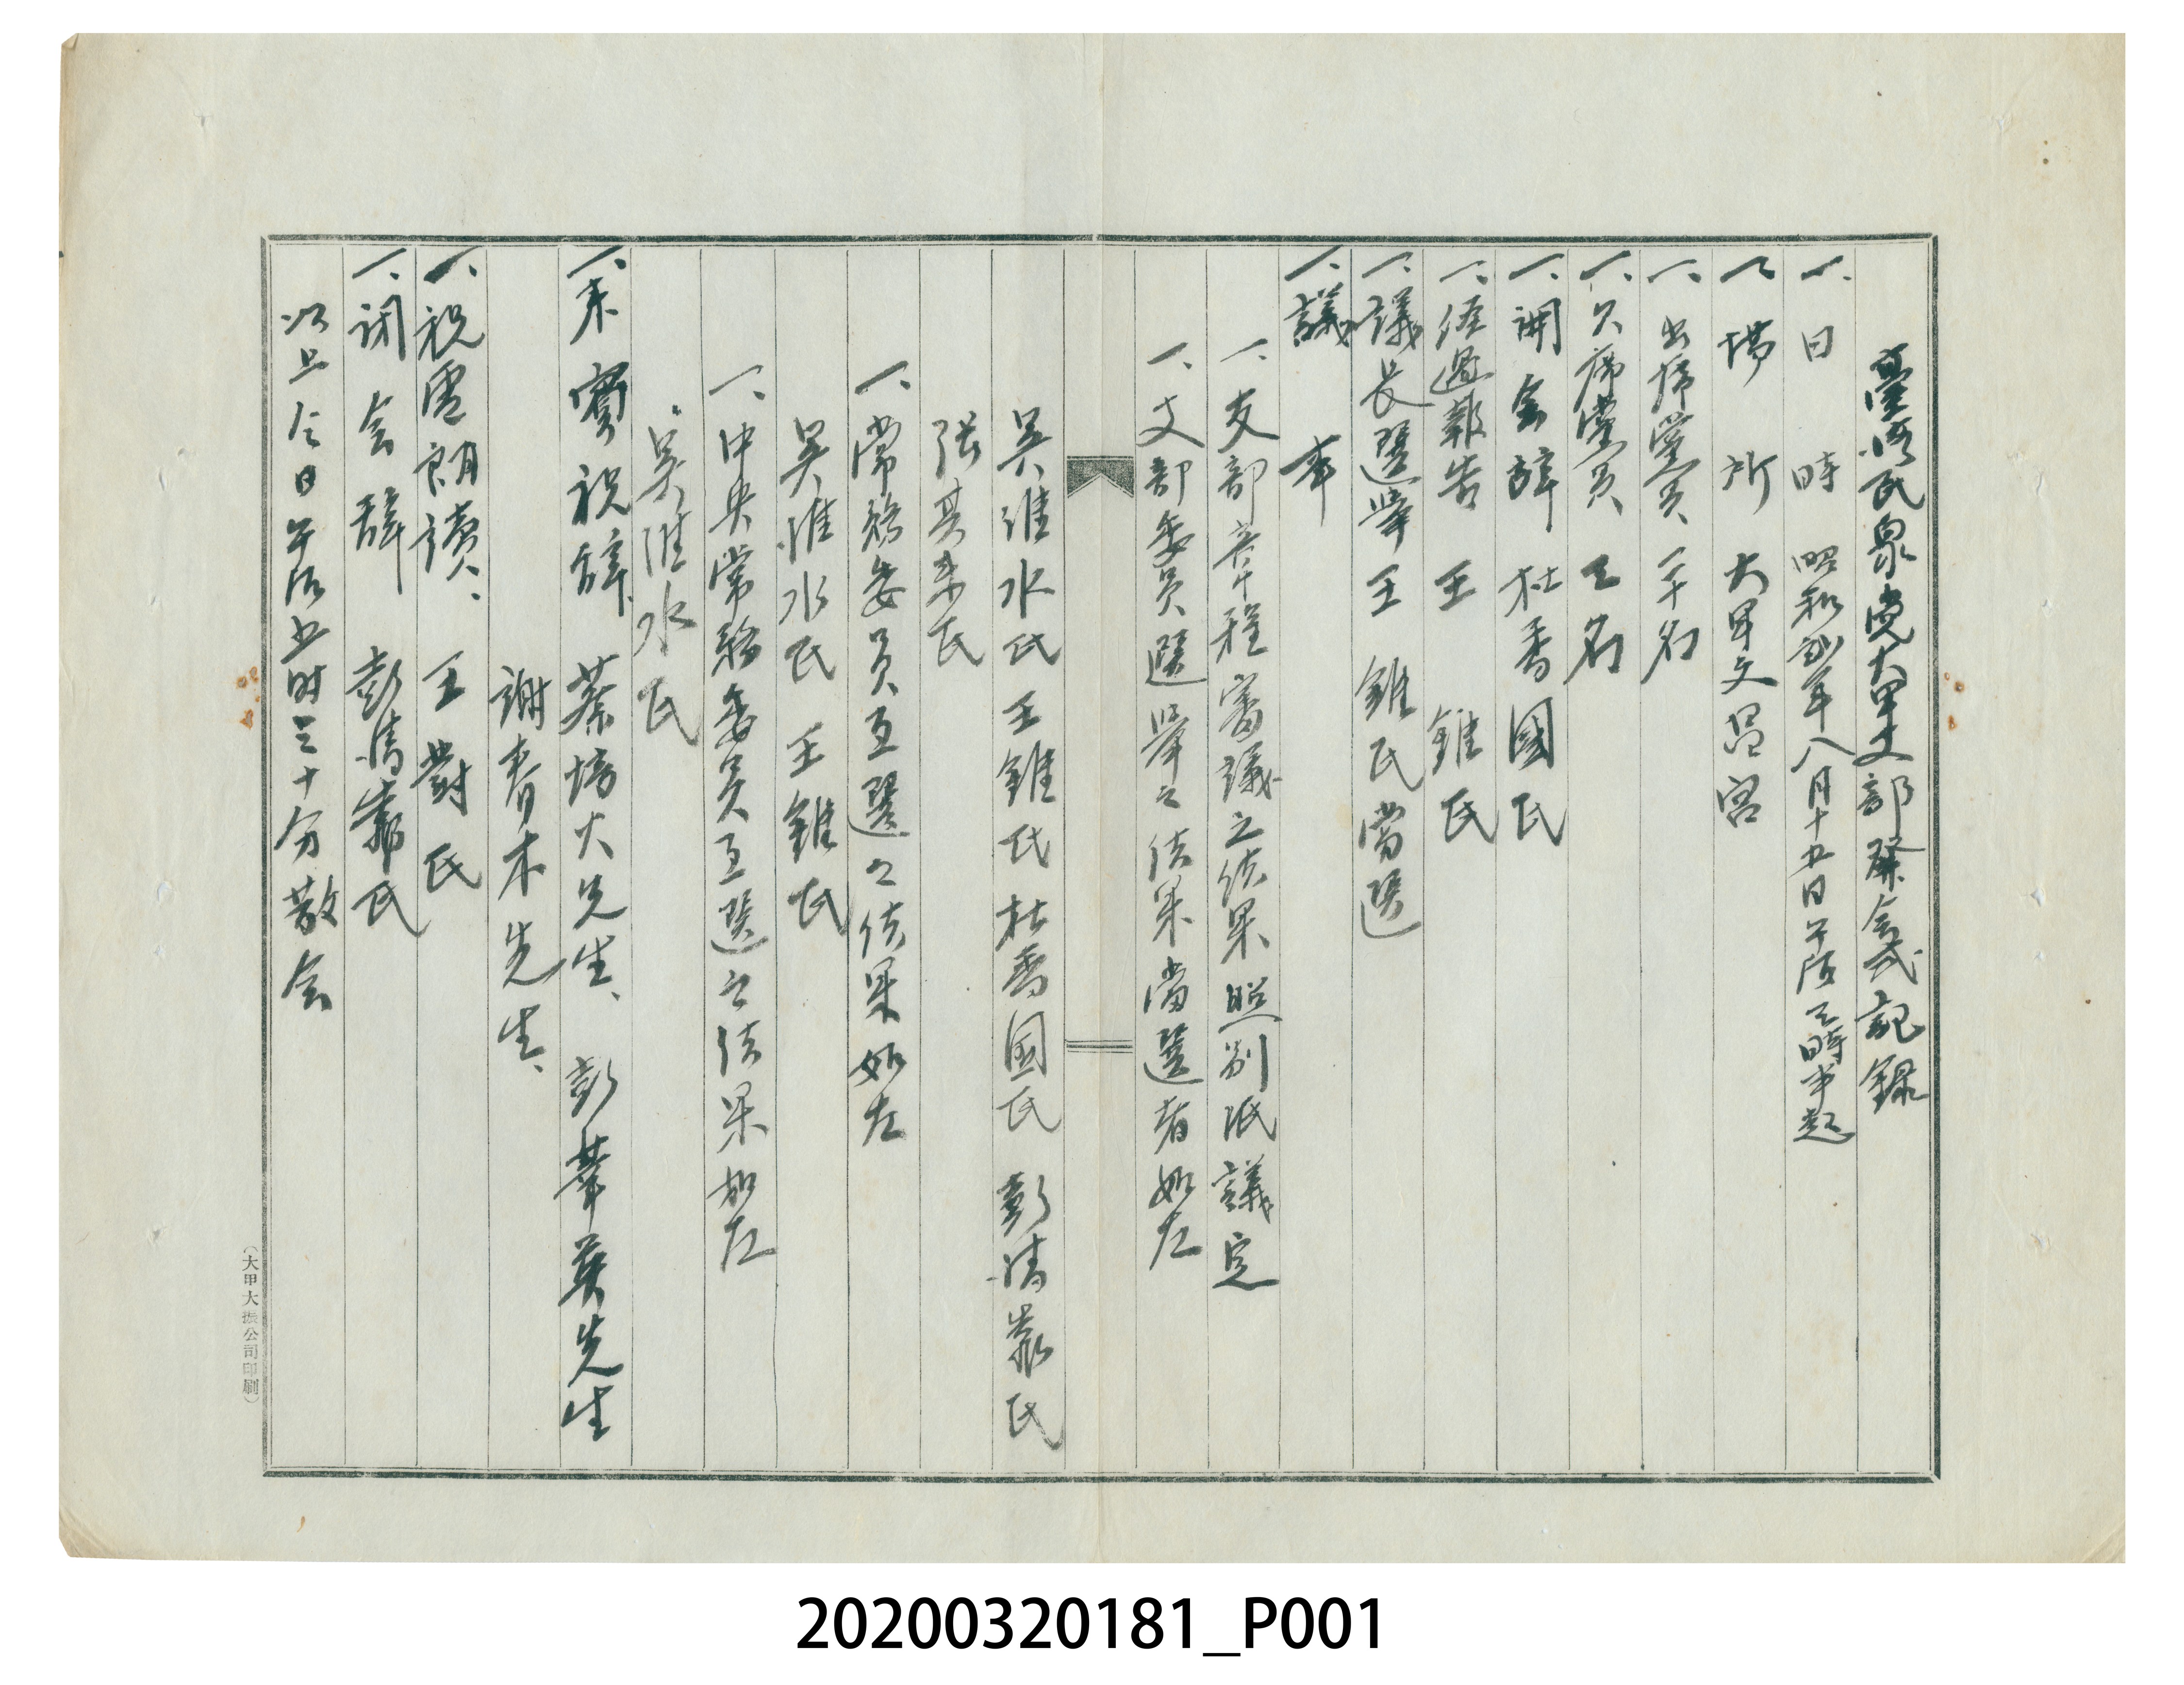 臺湾民衆党大甲支部發会式記録
一、日時 昭和弍年八月十五日午后三時半起
一、塲所 大甲文昌宮
一、出席党員 二十名
一、欠席党員 三名
一、開会辞 杜香國氏
一、経過報告 王錐氏
一、議長選挙 王錐氏當選
一、議事
一、支部章程審議之结果照別紙議定
一、支部委員選挙之结果當選者如左
吴淮水氏 王錐氏 杜香国氏 彭清靠氏
張其来氏
一、常務委員互選之结果如左
吴淮水氏 王錐氏
一、中央常務委員互選之结果如左
吴淮水氏
一、来賓祝辞 蔡培火先生、彭華英先生
謝春木先生、
一、祝電朗讀、王對氏
一、闭会辞 彭清靠氏
以上仝日午后五时三十分散会
（大甲大振公司印刷）
20200320181_P001